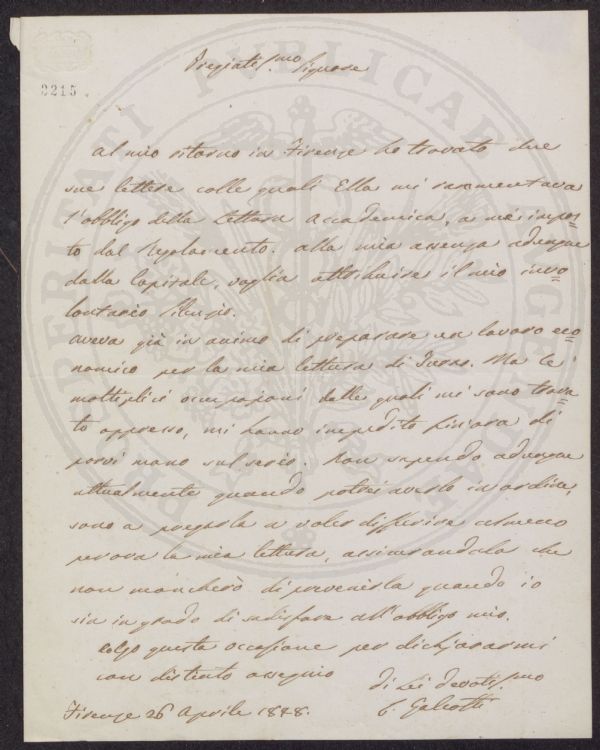 2215
Pregiatis.mo Signore
Al mio ritorno in Firenze ho trovato due
sue lettere colle quali Ella mi rammentava
l'obbligo della Lettura accademica, a me impos=
to dal Regolamento. Alla mia assenza adunque
dalla Capitale, voglia attribuire il mio invo=
lontario silenzio.
Aveva già in animo di preparare un lavoro eco=
nomico per la mia lettura di Turno. Ma le
moltiplici occupazioni dalle quali mi sono trova=
to oppresso, mi hanno impedito finora di
porvi mano sul serio. Non sapendo adunque
attualmente quando potrei averlo in ordine,
sono a pregarla a voler differire almeno
per ora la mia lettura, assicurandola che
non mancherò di prevenirla quando io
sia in grado di sodisfare all'obbligo mio.
Colgo questa occasione per dichiararmi
con distinto ossequio
di Lei devotis.mo
Firenze 26 Aprile 1848.
Galeotti
PROSPERITATI PUBLICAE AUGENDAE